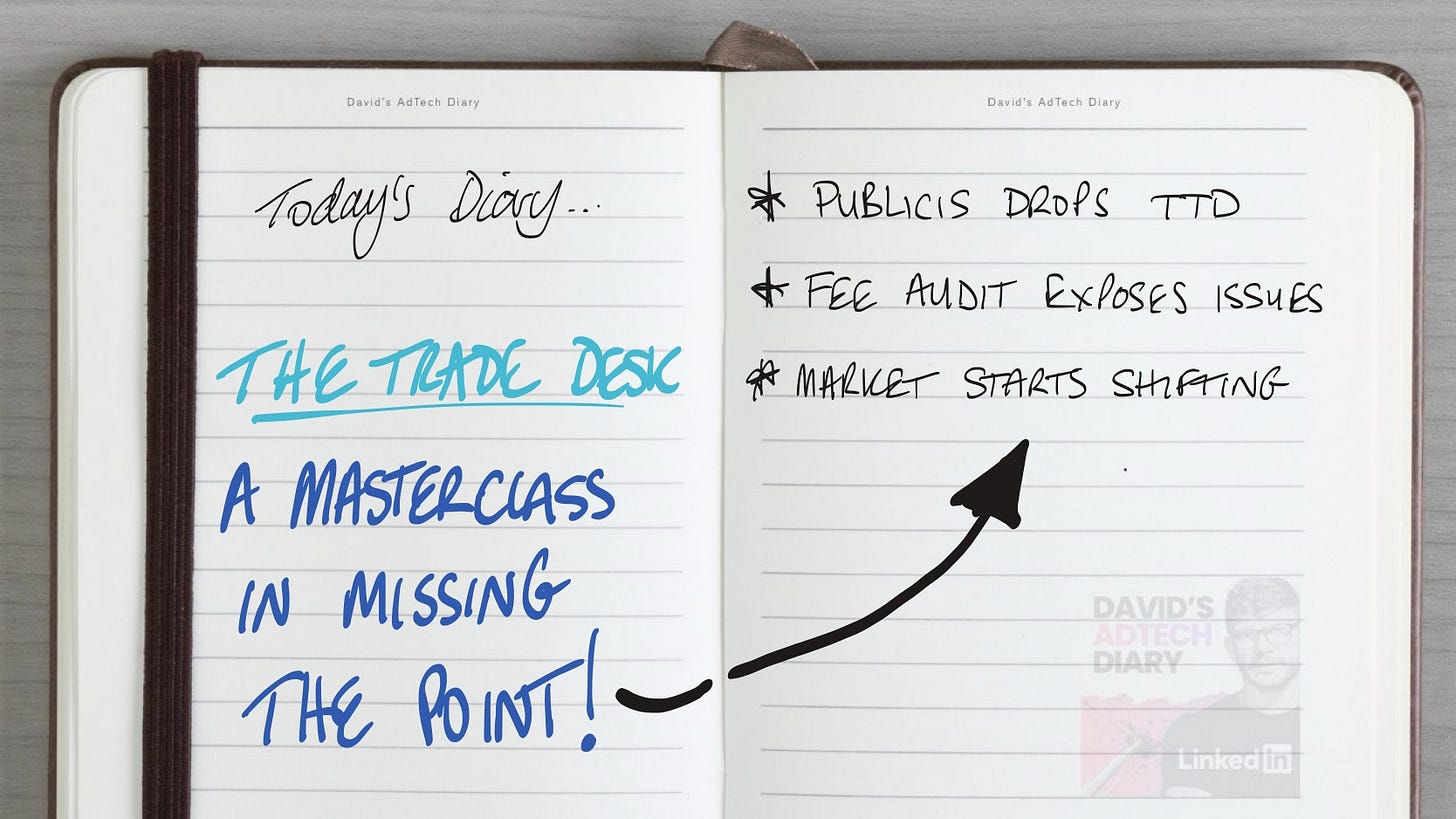 David's AdTech Diary
Today's Diary...
THE TRADE DESK
A MASTERCLASS
IN MISSING
THE POINT!
David's AdTech Diary
* PUBLICIS DROPS TTD
* FEE AUDIT EXPOSES ISSUES
* MARKET STARTS SHIFTING
DAVID'S
ADTECH
DIARY
LinkedIn